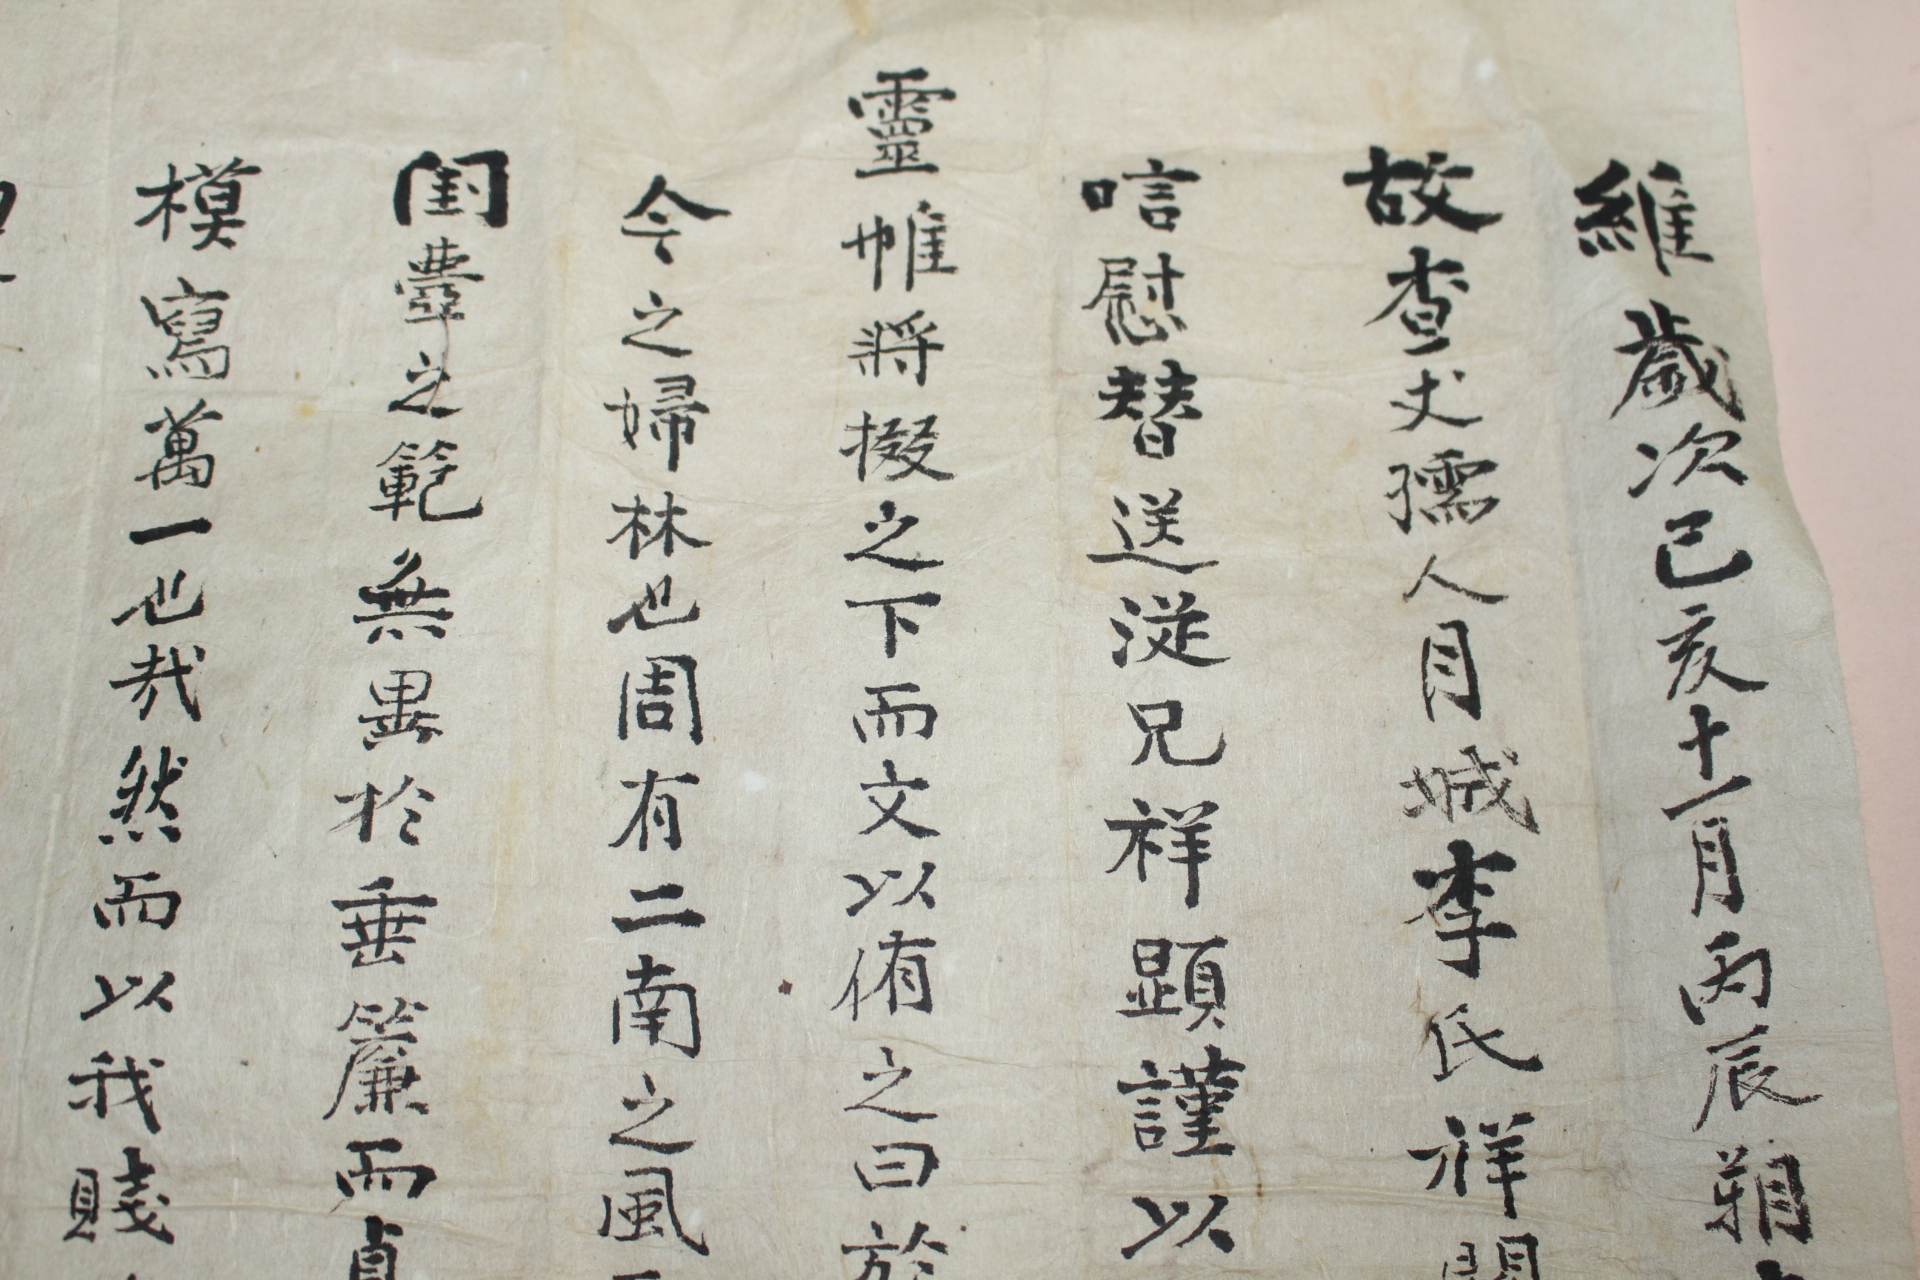 維歲次己亥十一月丙辰朔
故查丈孺人月城李氏祥
唁慰替送從兄祥顯謹以
靈帷將掇之下而文以侑之曰於
今之婦林也周有二南之風
閨壼之範無異於垂簾而貞
模寫萬一也哉然而以我賤